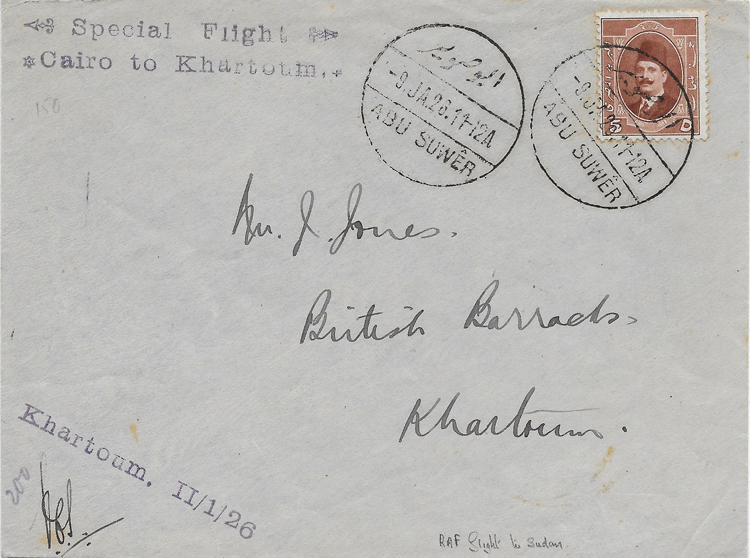 Special Flight
*Cairo to Khartoum.*
ابو صوير
-9.JA.26.11-12A
ABU SUWÊR
-9.JA.26.11-12A
ABU SUWÊR
5
150
Mr. J. Jones.
British Barracks
Khartoum.
Khartoum. II/1/26
200
RAF flight to Sudan